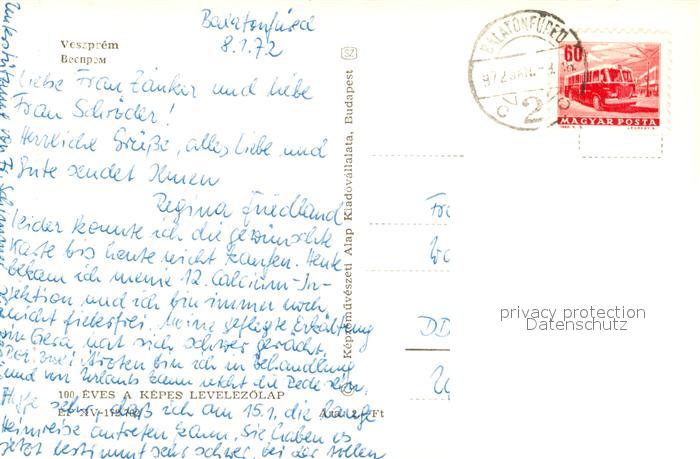 Balatonfüred
8.1.72
Veszprém
Веспрем
Liebe Frau Zänker und liebe
Frau Schröder!
Herzliche Grüße, alles Liebe und
Gute sendet Ihnen
Regina Friedland
Leider konnte ich die gewünschte
Karte bis heute nicht kaufen. Heute
bekam ich meine 12. Calcium-In-
jektion und ich bin immer noch
nicht fieberfrei. Meine gepflegte Erkältung
von Gera hat sich schwer gerächt.
Bei zwei Ärzten bin ich in Behandlung
und von Urlaub kann nicht die Rede sein.
100 ÉVES A KÉPES LEVELEZŐLAP
Hoffe sehr, daß ich am 15.1. die lange
Ára: 2,- Ft
Heimreise antreten kann. Sie haben es
jetzt bestimmt sehr schwer, bei der tollen
Képzőművészeti Alap Kiadóvállalata, Budapest
SZ
BALATONFÜRED
2
60
MAGYAR POSTA
Fr
DD
privacy protection
Datenschutz